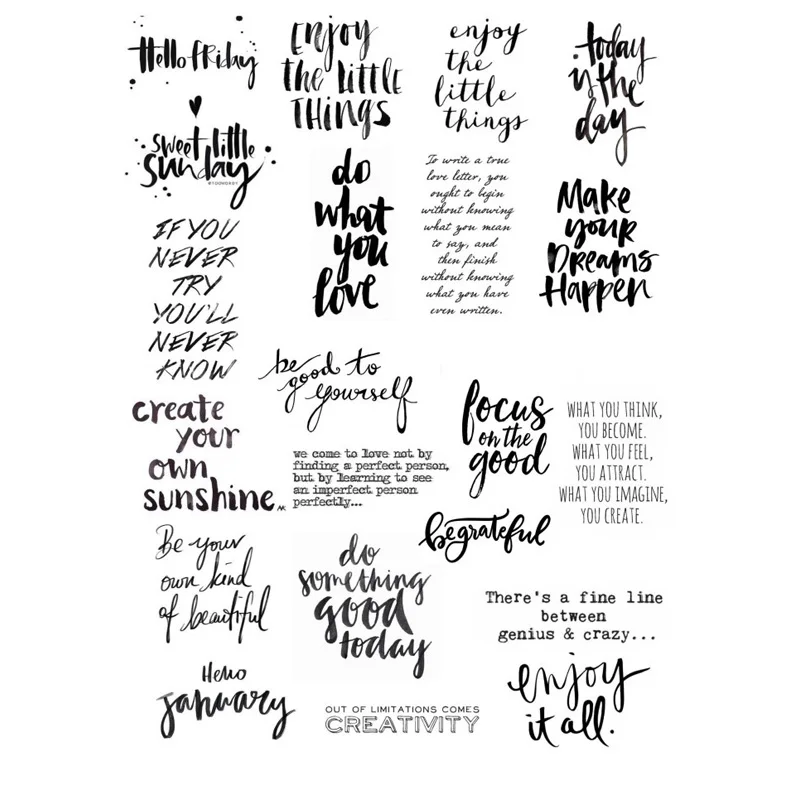 Hello FRiday
Enjoy
THE little
THiNGS
enjoy
the
little
things
today
is the
day
sweet little
sunday
do
what
you
love
To write a true
love letter, you
ought to begin
without knowing
what you mean
to say, and
then finish
without knowing
what you have
even written.
Make
youR
DReams
Happen
IF YOU
NEVER
TRY
YOU'LL
NEVER
KNOW
be
good to
yourself
create
your
own
sunshine.
we come to love not by
finding a perfect person,
but by learning to see
an imperfect person
perfectly...
focus
on the
good
WHAT YOU THINK,
YOU BECOME.
WHAT YOU FEEL,
YOU ATTRACT.
WHAT YOU IMAGINE,
YOU CREATE.
begrateful
Be your
own kind
of beautiful
do
something
good
today
There's a fine line
between
genius & crazy...
Hello
january
OUT OF LIMITATIONS COMES
CREATIVITY
enjoy
it all.